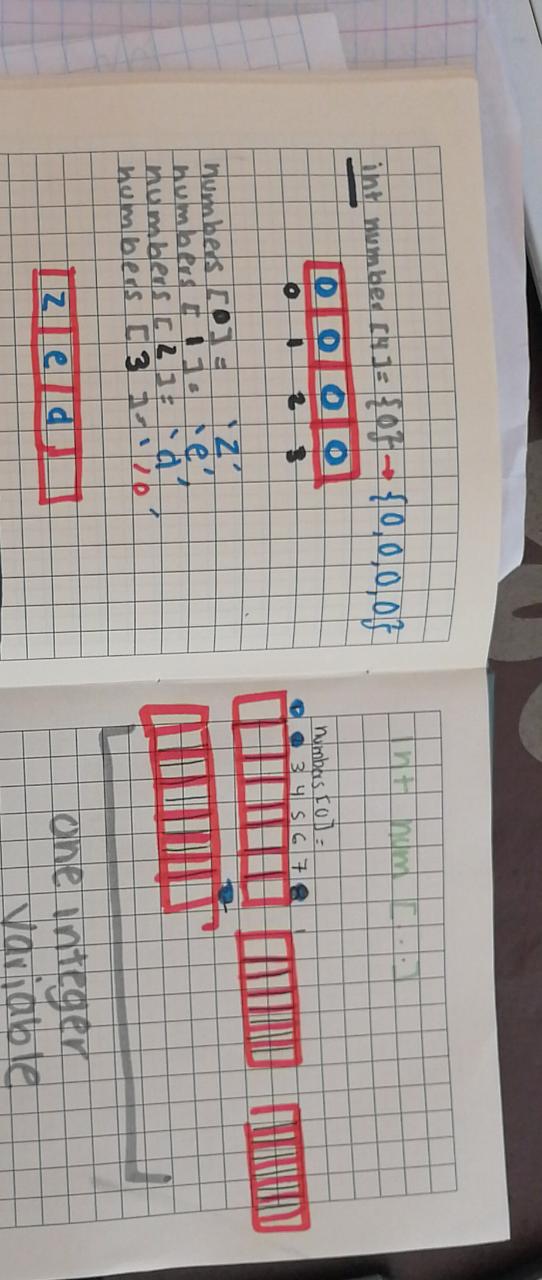 int number[4]= {0} → {0,0,0,0}
0 0 0 0
0 1 2 3
numbers [0] = 'Z'
numbers [1] = 'e'
numbers [2] = 'd'
numbers [3] = '\0'
Z e d
int num [...]
numbers[0] =
3 4 5 6 7 8
one integer
variable